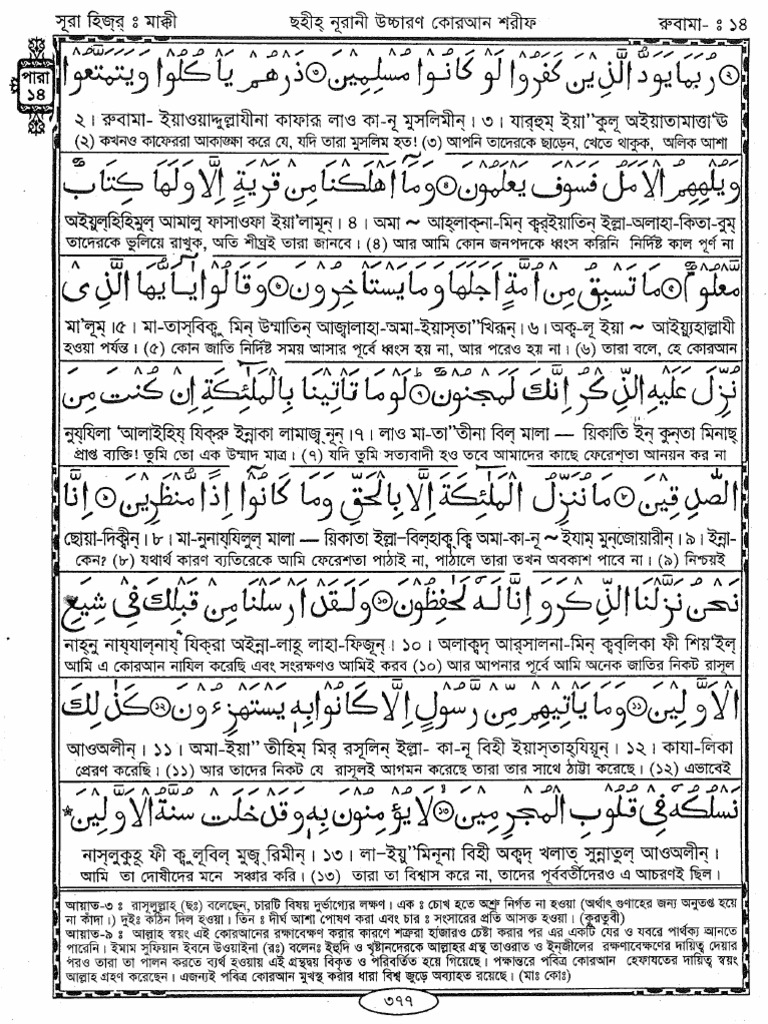 সূরা হিজ্‌র্‌ ঃ মাক্কী ছহীহ্ নূরানী উচ্চারণ কোরআন শরীফ রুবামা- ঃ ১৪
পারা
১৪
۝٢ رُبَمَا يَوَدُّ الَّذِيْنَ كَفَرُوْا لَوْ كَانُوْا مُسْلِمِيْنَ ۝٣ ذَرْهُمْ يَاْكُلُوْا وَيَتَمَتَّعُوْا
২। রুবামা- ইয়াওয়াদ্দুল্লাযীনা কাফারূ লাও কা-নূ মুসলিমীন্। ৩। যার্‌হুম্ ইয়া”কুলূ অইয়াতামাত্তা‘ঊ
(২) কখনও কাফেররা আকাঙ্ক্ষা করে যে, যদি তারা মুসলিম হত! (৩) আপনি তাদেরকে ছাড়েন, খেতে থাকুক, অলিক আশা
وَيُلْهِهِمُ الْاَمَلُ فَسَوْفَ يَعْلَمُوْنَ ۝٤ وَمَآ اَهْلَكْنَا مِنْ قَرْيَةٍ اِلَّا وَلَهَا كِتَابٌ
অইয়ুল্‌হিহিমুল্ আমালু ফাসাওফা ইয়া’লামূন্। ৪। অমা ~ আহ্‌লাক্‌না-মিন্ ক্বর্‌ইয়াতিন্ ইল্লা-অলাহা-কিতা-বুম্
তাদেরকে ভুলিয়ে রাখুক, অতি শীঘ্রই তারা জানবে। (৪) আর আমি কোন জনপদকে ধ্বংস করিনি নির্দিষ্ট কাল পূর্ণ না
مَّعْلُوْمٌ ۝٥ مَا تَسْبِقُ مِنْ اُمَّةٍ اَجَلَهَا وَمَا يَسْتَاْخِرُوْنَ ۝٦ وَقَالُوْا يٰٓاَيُّهَا الَّذِيْ
মা’লূম্।৫। মা-তাস্‌বিক্বু মিন্ উম্মাতিন্ আজ্বালাহা-অমা-ইয়াস্‌তা”খিরূন্। ৬। অক্ব-লূ ইয়া ~ আইয়্যুহাল্লাযী
হওয়া পর্যন্ত। (৫) কোন জাতি নির্দিষ্ট সময় আসার পূর্বে ধ্বংস হয় না, আর পরেও হয় না। (৬) তারা বলে, হে কোরআন
نُزِّلَ عَلَيْهِ الذِّكْرُ اِنَّكَ لَمَجْنُوْنٌ ۝٧ لَوْمَا تَاْتِيْنَا بِالْمَلٰٓئِكَةِ اِنْ كُنْتَ مِنَ
নুয্‌যিলা ‘আলাইহিয্ যিক্‌রু ইন্নাকা লামাজ্ব্‌নূন্।৭। লাও মা-তা”তীনা বিল্ মালা — য়িকাতি ইন্ কুন্‌তা মিনাছ্
প্রাপ্ত ব্যক্তি! তুমি তো এক উম্মাদ মাত্র। (৭) যদি তুমি সত্যবাদী হও তবে আমাদের কাছে ফেরেশ্‌তা আনয়ন কর না
الصّٰدِقِيْنَ ۝٨ مَا نُنَزِّلُ الْمَلٰٓئِكَةَ اِلَّا بِالْحَقِّ وَمَا كَانُوْٓا اِذًا مُّنْظَرِيْنَ ۝٩ اِنَّا
ছোয়া-দিক্বীন্।৮। মা-নুনায্‌যিলুল্ মালা — য়িকাতা ইল্লা-বিল্‌হাক্ব্‌ক্বি অমা-কা-নূ ~ ইযাম্ মুন্‌জোয়ারীন্। ৯। ইন্না-
কেন? (৮) যথার্থ কারণ ব্যতিরেকে আমি ফেরেশতা পাঠাই না, পাঠালে তারা তখন অবকাশ পাবে না। (৯) নিশ্চয়ই
نَحْنُ نَزَّلْنَا الذِّكْرَ وَاِنَّا لَهٗ لَحٰفِظُوْنَ ۝١٠ وَلَقَدْ اَرْسَلْنَا مِنْ قَبْلِكَ فِيْ شِيَعِ
নাহ্‌নু নায্‌যাল্‌নায্ যিক্‌রা অইন্না-লাহূ লাহা-ফিজূন্। ১০। অলাক্বদ্ আর্‌সালনা-মিন্ ক্বব্‌লিকা ফী শিয়া‘ইল্
আমি এ কোরআন নাযিল করেছি এবং সংরক্ষণও আমিই করব (১০) আর আপনার পূর্বে আমি অনেক জাতির নিকট রাসূল
الْاَوَّلِيْنَ ۝١١ وَمَا يَاْتِيْهِمْ مِّنْ رَّسُوْلٍ اِلَّا كَانُوْا بِهٖ يَسْتَهْزِءُوْنَ ۝١٢ كَذٰلِكَ
আওঅলীন্। ১১। অমা-ইয়া” তীহিম্ মির্ রসূলিন্ ইল্লা- কা-নূ বিহী ইয়াস্‌তাহ্‌যিয়ূন্। ১২। কাযা-লিকা
প্রেরণ করেছি। (১১) আর তাদের নিকট যে রাসূলই আগমন করেছে তারা তার সাথে ঠাট্টা করেছে। (১২) এভাবেই
نَسْلُكُهٗ فِيْ قُلُوْبِ الْمُجْرِمِيْنَ ۝١٣ لَا يُؤْمِنُوْنَ بِهٖ وَقَدْ خَلَتْ سُنَّةُ الْاَوَّلِيْنَ *
নাস্‌লুকুহূ ফী ক্বুলূবিল্ মুজ্ব্‌রিমীন্। ১৩। লা-ইয়ু”মিনূনা বিহী অক্বদ্ খলাত্ সুন্নাতুল্ আওঅলীন্।
আমি তা দোষীদের মনে সঞ্চার করি। (১৩) তারা তা বিশ্বাস করে না, তাদের পূর্ববর্তীদেরও এ আচরণই ছিল।
আয়াত-৩ঃ রাসূলুল্লাহ্ (ছঃ) বলেছেন, চারটি বিষয় দুর্ভাগ্যের লক্ষণ। এক ঃ চোখ হতে অশ্রু নির্গত না হওয়া (অর্থাৎ গুণাহের জন্য অনুতপ্ত হয়ে
না কাঁদা।) দুইঃ কঠিন দিল হওয়া। তিন ঃ দীর্ঘ আশা পোষণ করা এবং চার ঃ সংসারের প্রতি আসক্ত হওয়া। (কুরতুবী)
আয়াত-৯ ঃ আল্লাহ স্বয়ং এই কোরআনের রক্ষাবেক্ষণ করার কারণে শত্রুরা হাজারও চেষ্টা করার পর এর একটি যের ও যবরে পার্থক্য আনতে
পারেনি। ইমাম সুফিয়ান ইবনে উওয়াইনা (রঃ) বলেনঃ ইহুদি ও খৃষ্টানদেরকে আল্লাহর গ্রন্থ তাওরাত ও ইন্‌জীলের রক্ষণাবেক্ষণের দায়িত্ব দেয়ার
পরও তারা তা পালন করতে ব্যর্থ হওয়ায় এই গ্রন্থদ্বয় বিকৃত ও পরিবর্তিত হয়ে গিয়েছে। পক্ষান্তরে পবিত্র কোরআন হেফাযতের দায়িত্ব স্বয়ং
আল্লাহ গ্রহণ করেছেন। এজন্যই পবিত্র কোরআন মুখস্থ করার ধারা বিশ্ব জুড়ে অব্যাহত রয়েছে। (মাঃ কোঃ)
৩৭৭